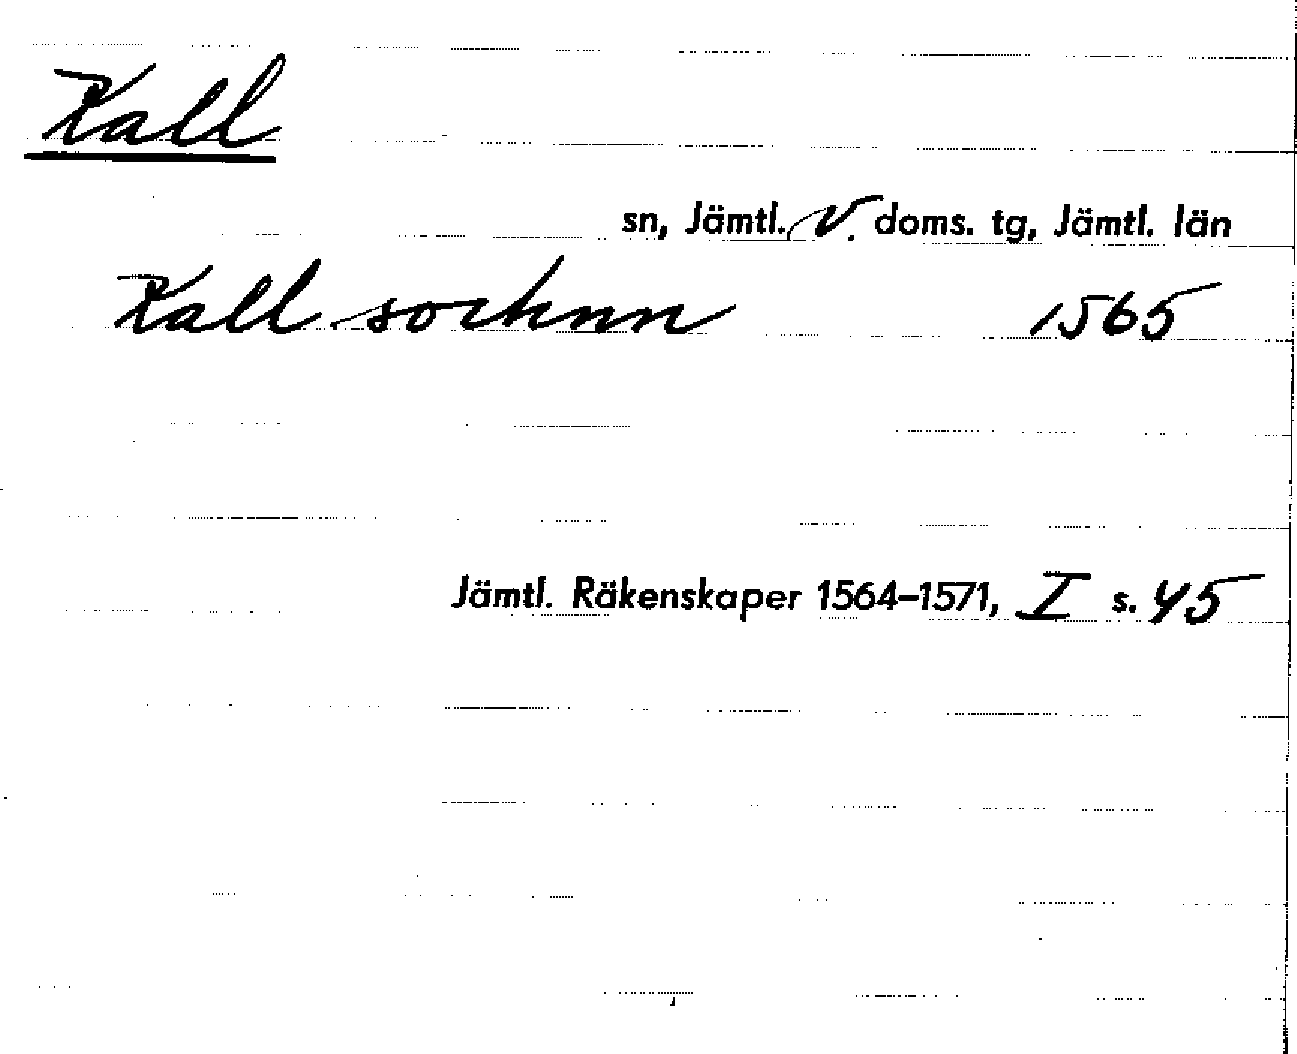 Kall
sn, Jämtl. V. doms. tg, Jämtl. län
Kall sochnn 1565
Jämtl. Räkenskaper 1564–1571, I s. 45